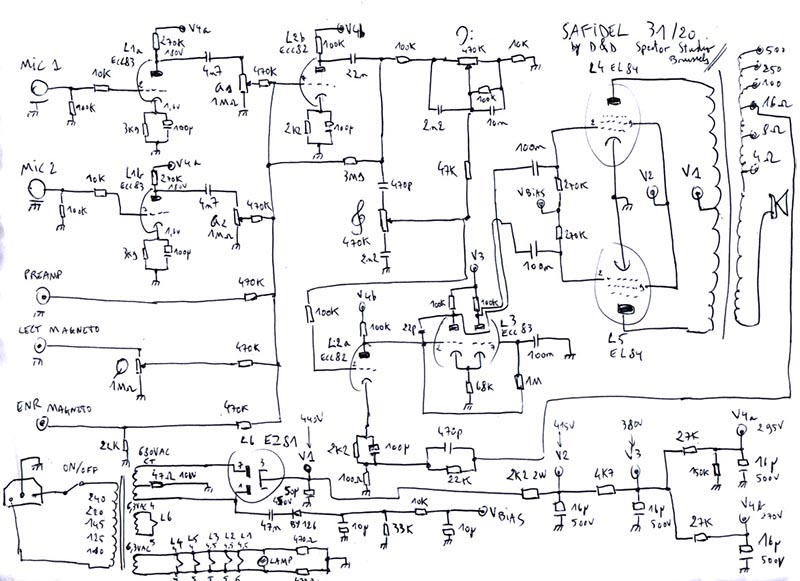 SAFIDEL 31/20
by D&D Spector Studio
Brussels
MIC 1
10K
100K
L1a
ECC83
V4a
270K
180V
1,6V
3K9
100µ
4n7
G1
1MΩ
470K
L2b
ECC82
V4b
100K
2K2
100µ
22n
100K
470K
10K
100K
2n2
10n
L4 EL84
500
250
100
16Ω
8Ω
4Ω
MIC 2
10K
100K
L1b
ECC83
V4a
270K
180V
1,6V
3K9
100µ
4n7
G2
1MΩ
470K
3M9
470p
470K
2n2
47K
100n
270K
VBIAS
270K
100n
V2
V1
L5
EL84
PREAMP
470K
LECT MAGNETO
1MΩ
470K
ENR MAGNETO
470K
22K
100K
V4b
100K
L2a
ECC82
22p
V3
100K
100K
L3
ECC83
68K
1M
100n
2K2
100µ
100Ω
470p
22K
ON/OFF
240
220
145
125
110
680VAC
CT
47Ω 10W
6,3VAC
L6
6,3VAC
L6 EZ81
445V
V1
50µ
500V
47n
BY126
10µ
33K
10K
10µ
VBIAS
L4
L5
L3
L2
L1
LAMP
470Ω
470Ω
415V
V2
2K2 2W
16µ
500V
4K7
380V
V3
16µ
500V
27K
150K
V4a
295V
16µ
500V
27K
V4b
270V
16µ
500V